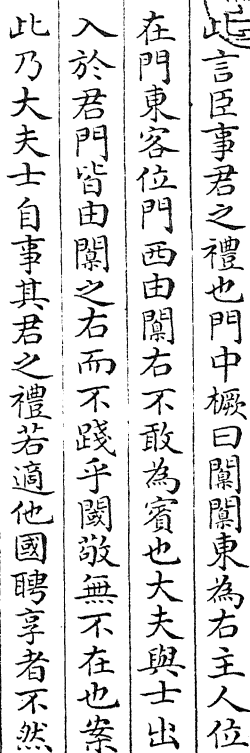 此言臣事君之禮也門中橛曰闑闑東為右主人位
在門東客位門西由闑右不敢為賓也大夫與士出
入於君門皆由闑之右而不踐乎閾敬無不在也案
此乃大夫士自事其君之禮若適他國聘享者不然